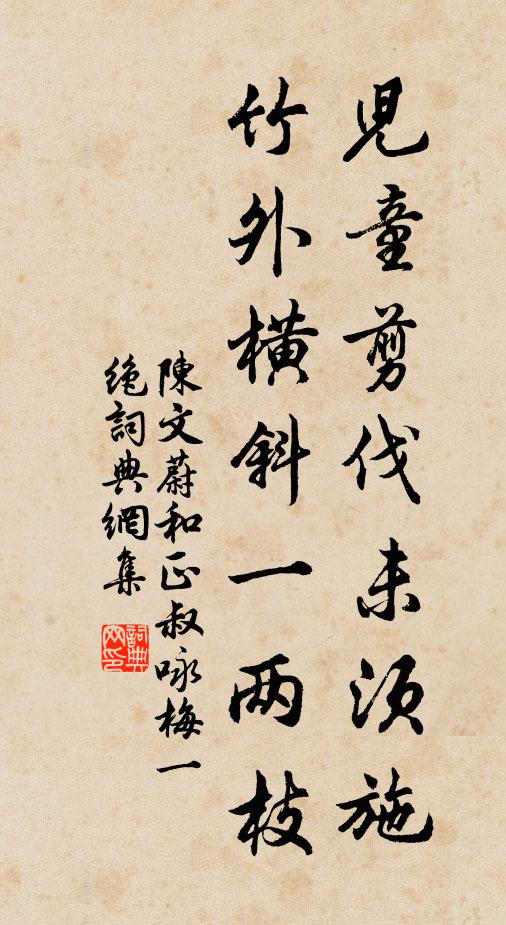 兒童剪伐未須施
竹外橫斜一兩枝
陳文蔚和正叔咏梅一
絶詞典網集
詞典
網印